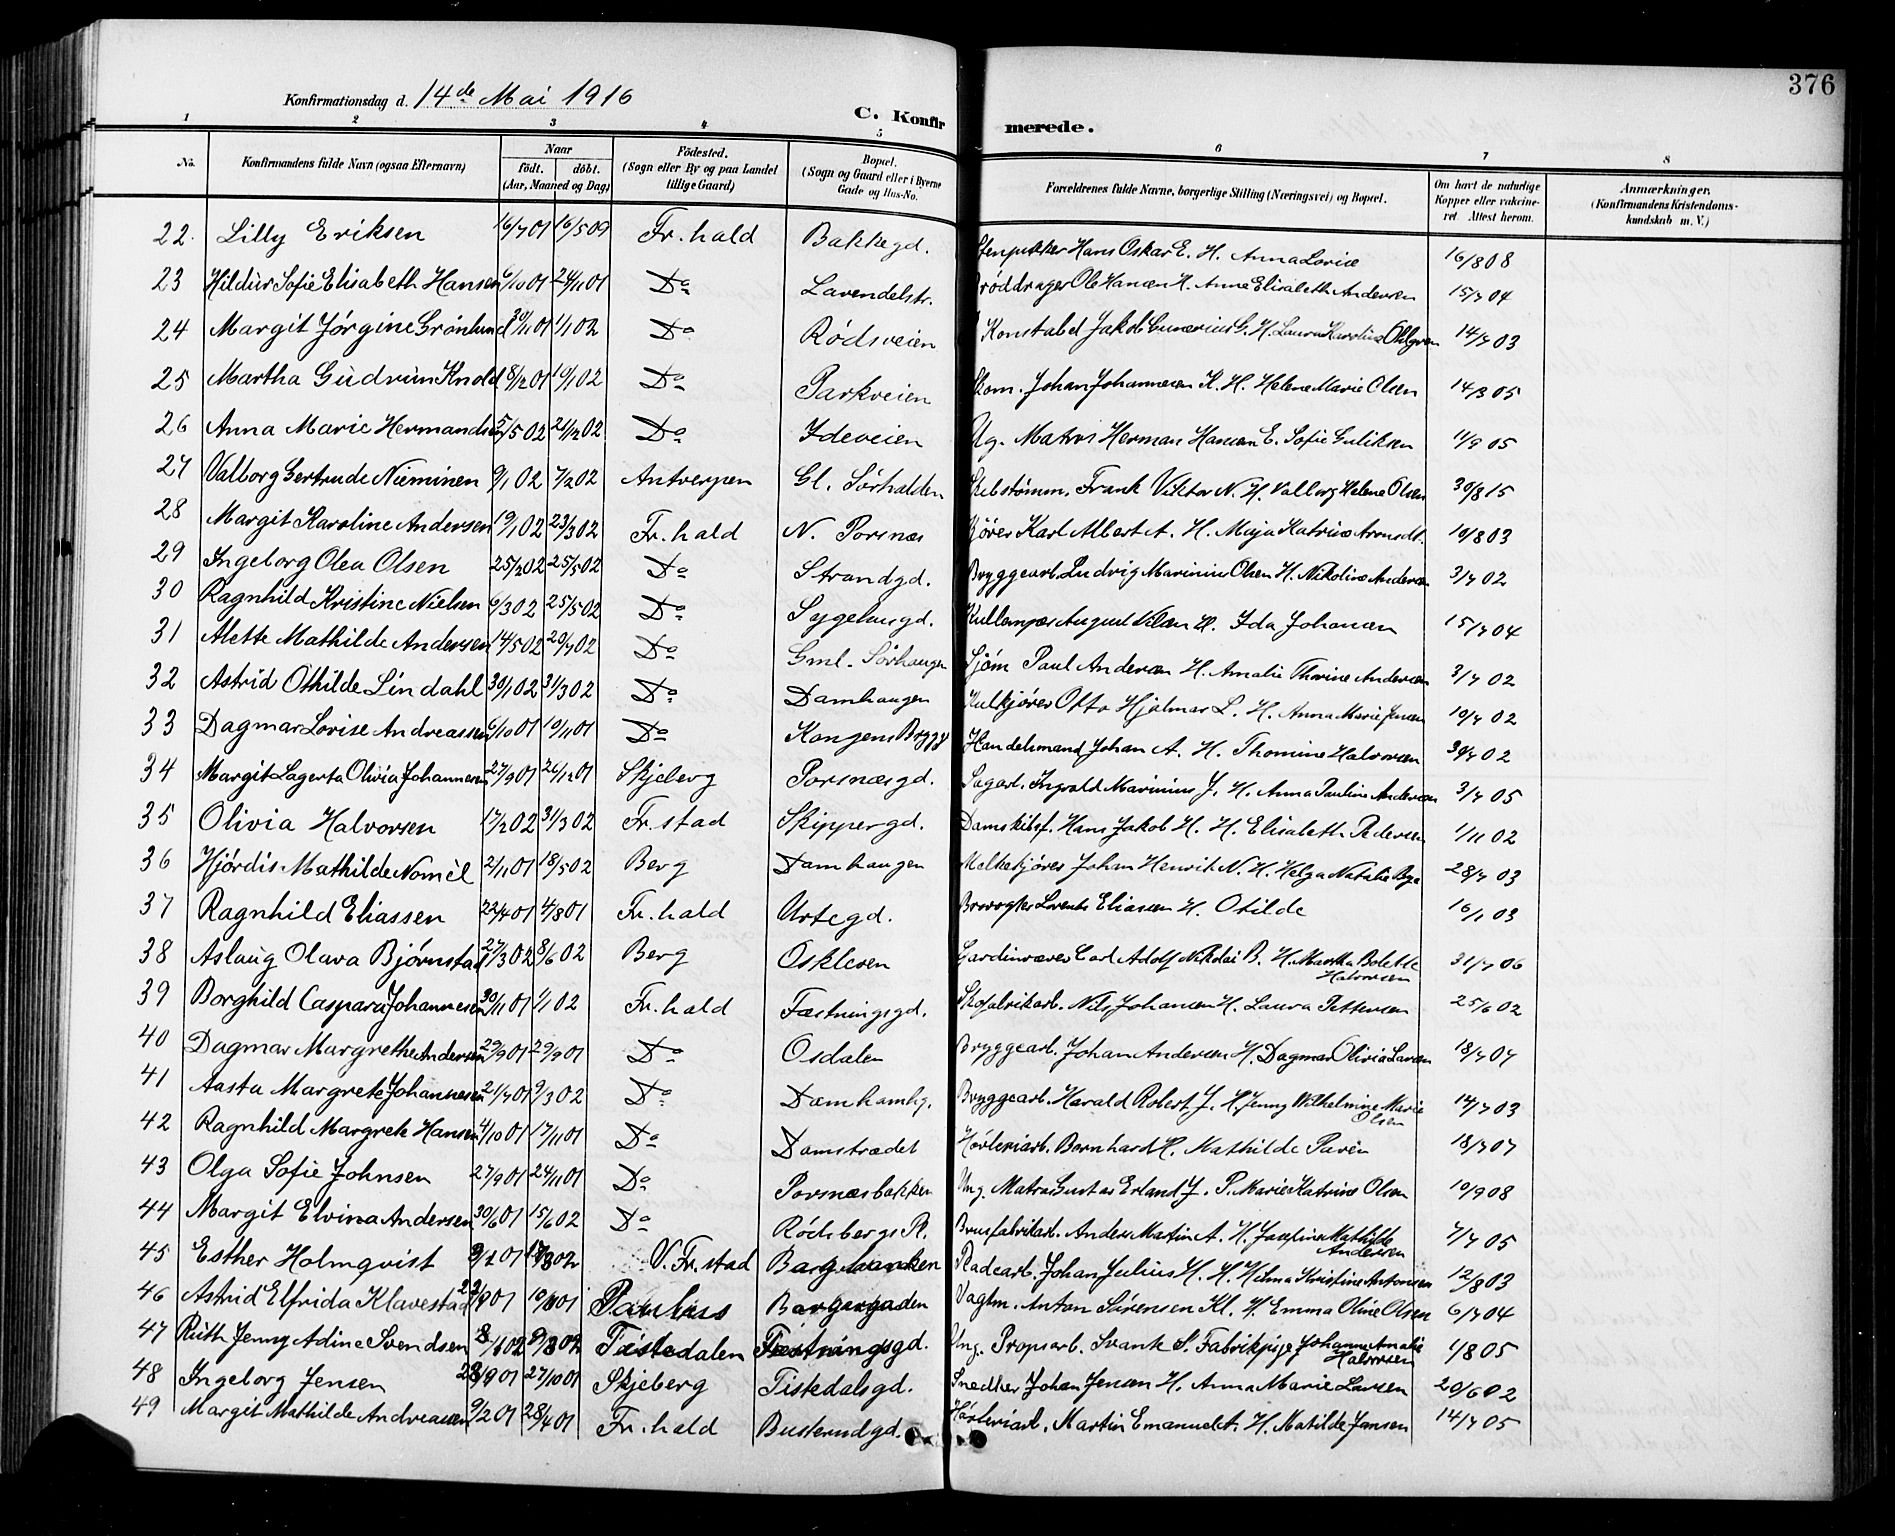 376
Konfirmationsdag d. 14de Mai 1916
C. Konfirmerede.
1 2 3 4 5 6 7 8
No. Konfirmandens fulde Navn (ogsaa Efternavn) Naar født. døbt. (Aar, Maaned og Dag) Fødested. (Sogn eller By og paa Landet tillige Gaard) Bopæl. (Sogn og Gaard eller i Byerne Gade og Hus-No. Forældrenes fulde Navne, borgerlige Stilling (Næringsvei) og Bopæl. Om havt de naturlige Kopper eller vakcineret. Attest herom. Anmærkninger. (Konfirmandens Kristendomskundskab m. V.)
22. Lilly Eriksen 16/7 01 16/5 09 Fr.hald Bakkegd. Stenpukker Hans Oskar E. H. Anna Lovise 16/8 08
23 Hildur Sofie Elisabeth Hansen 6/10 01 24/11 01 Do Lavendelstr. Brøddrager Ole Hansen H. Anne Elisabeth Andersen 15/7 04
24 Margit Jørgine Grönlund 30/11 01 1/1 02 Do Rødsveien Konstabel Jakob Gunerius G. H. Laura Karoline Ohlgren 14/7 03
25 Martha Gudrun Knold 8/12 01 19/1 02 Do Parkveien Skom. Johan Johannesen K. H. Helene Marie Olsen 14/3 05
26 Anna Marie Hermandsen 5/5 02 21/12 02 Do Ideveien Ug. Matros Herman Hansen E. Sofie Guliksen 1/9 05
27 Valborg Gertrude Nieminen 9/1 02 7/2 02 Antverpen Gl. Sørhalden Skibstømm. Frank Viktor N. H. Valborg Helene Olsen 30/8 15
28 Margit Karoline Andersen 19/1 02 23/3 02 Fr.hald N. Porsnes Kjører Karl Albert A. H. Maja Katrine Arensdt. 10/8 03
29 Ingeborg Olea Olsen 25/2 02 25/5 02 Do Strandgd. Bryggearb. Ludvig Marinius Olsen H. Nikoline Andersen 3/7 02
30 Ragnhild Kristine Nielsen 6/3 02 25/5 02 Do Sygehusgd. August Nilsen H. Ida Johansen 15/7 04
31 Alette Mathilde Andersen 14/5 02 20/7 02 Do Gml. Sørhaugen Sjøm Paul Andersen H. Amalie Thorine Andersen 3/7 02
32 Astrid Othilde Lindahl 30/1 02 31/3 02 Do Damhaugen Kulkjører Otto Hjalmar L. H. Anna Marie Jensen 10/7 02
33 Dagmar Lovise Andreassen 6/10 01 10/11 01 Do Kongens Brygge Handelsmand Johan A. H. Thomine Halvorsen 30/7 02
34 Margit Lagerta Olivia Johannesen 27/9 01 26/12 01 Skjeberg Porsnæsgd. Sagarb. Ingvald Marinius J. H. Anna Pauline Andersen 3/7 05
35 Olivia Halvorsen 17/2 02 31/3 02 Fr.stad Skippergd. Damskibsf. Hans Jakob H. H. Elisabeth Pedersen 1/11 02
36 Hjördis Mathilde Nomèl 2/11 01 18/5 02 Berg Damhaugen Melkekjører Johan Henrik N. H. Helga Natalie Bye 28/7 03
37 Ragnhild Eliassen 22/4 01 4/8 01 Fr.hald Urtegd. Brovogter Lorents Eliassen H. Otilde 16/1 03
38 Aslaug Olava Bjørnstad 27/3 02 8/6 02 Berg Oskleven Gardinvæver Carl Adolf Nikolai B. H. Martha Bolette Halvorsen 31/7 06
39 Borghild Caspara Johannesen 30/11 01 1/1 02 Fr.hald Fæstningsgd. Skofabrikarb. Nils Johansen H. Laura Pettersen 25/6 02
40 Dagmar Margrethe Andersen 29/9 01 29/9 01 Do Osdalen Bryggearb. Johan Andersen H. Dagmar Olivia Larsen 18/7 07
41 Aasta Margrete Johannesen 21/7 01 9/3 02 Do Damhamhg. Bryggearb. Harald Robert J. H. Jenny Wilhelmine Marie Olsen 14/7 03
42 Ragnhild Margrete Hansen 4/10 01 17/11 01 Do Damstrædet Høvleriarb. Bernhard H. Mathilde 18/7 07
43 Olga Sofie Johnsen 27/9 01 24/11 01 Do Porsnæsbakken Ung. Matros Gustav Erland J. P. Marie Katrine Olsen 10/9 08
44 Margit Elvina Andersen 30/6 01 15/6 02 Do Rödsbergs R. Brusfabrikarb. Anders Martin A. H. Josefine Mathilde Andersen 7/7 05
45 Esther Holmqvist V. Fr.stad Bargbanken Johan Julius H. H. Hilma Kristine Antonsen 12/8 03
46 Astrid Elfrida Klavestad Borgergaden Vagtm. Anton Sørensen Kl. H. Emma Oline Olsen 6/7 04
47 Ruth Jenny Adine Svendsen Tistedalen Fæstningsgd. Ung. Propsarb. Svank S. Fabrikpige Johanne Amalie Halvorsen 1/8 05
48 Ingeborg Jensen 23/9 01 27/10 01 Skjeberg Tistedalsgd. Snedker Johan Jensen H. Anna Marie Larsen 20/6 02
49 Margit Mathilde Andreassen 9/2 01 28/4 01 Fr.hald Busterudgd. Høvleriarb. Martin Emanuel A. H. Matilde Jansen 14/7 05